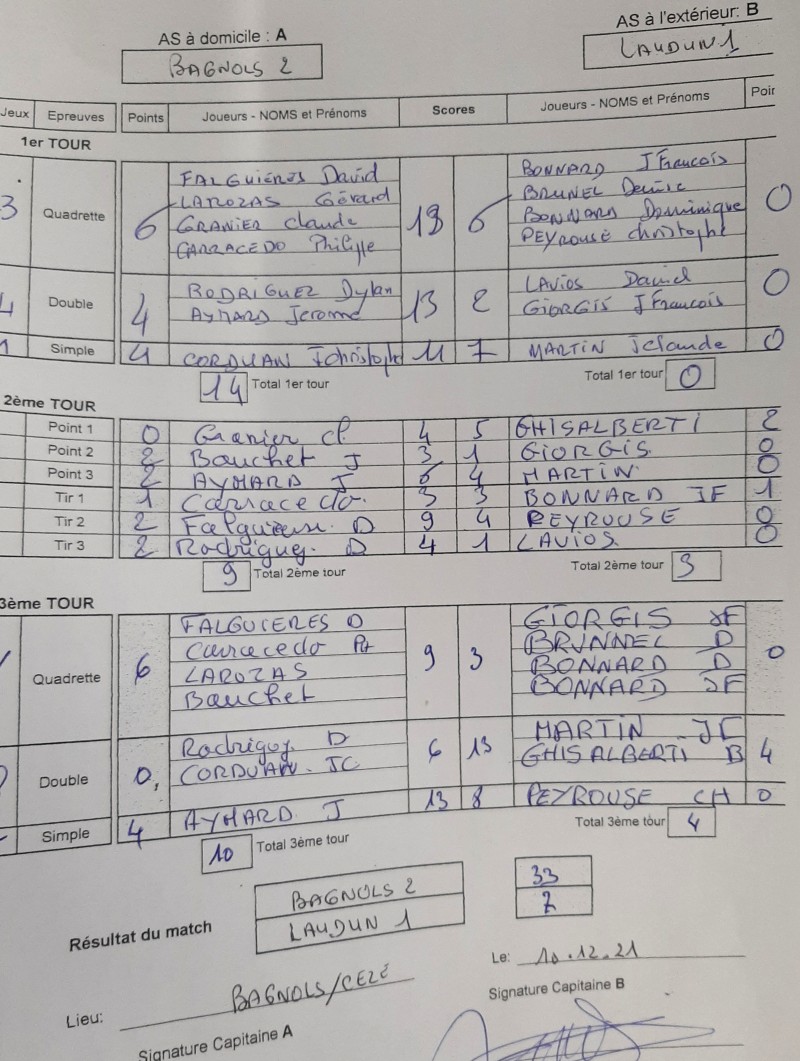 AS à domicile : A
AS à l'extérieur: B
BAGNOLS 2
LAUDUN 1
Jeux Epreuves Points Joueurs - NOMS et Prénoms Scores Joueurs - NOMS et Prénoms Poir
1er TOUR
3 Quadrette 6 13 6 0
FALGUIÉRES David BONNARD JFrancois
LAROZAS Gérard BRUNEL Denise
GRANIER Claude BONNARD Dominique
CARRACEDO Philippe PEYROUSE christophe
4 Double 4 13 2 0
RODRIGUEZ Dylan LAVIOS David
AYMARD Jerome GIORGIS JFrancois
1 Simple 4 CORDUAN Jchristophe 11 7 MARTIN Jclaude 0
14 Total 1er tour Total 1er tour 0
2ème TOUR
Point 1 0 Granier cl. 4 5 GHISALBERTI 2
Point 2 2 Bauchet J 3 1 GIORGIS 0
Point 3 2 AYMARD J 6 4 MARTIN 0
Tir 1 1 Carracedo. 3 3 BONNARD JF 1
Tir 2 2 D 9 4 PEYROUSE 0
Tir 3 2 Rodriguez. D 4 1 LAVIOS 0
9 Total 2ème tour Total 2ème tour 3
3ème TOUR
Quadrette 6 9 3 0
FALGUIERES D GIORGIS JF
Carracedo PH BRUNNEL D
LAROZAS BONNARD D
Bauchet BONNARD JF
Double 0, 6 13 4
Rodriguez. D MARTIN JC
CORDUAN. JC GHISALBERTI B
Simple 4 AYMARD J 13 8 PEYROUSE CH 0
10 Total 3ème tour Total 3ème tour 4
Résultat du match
BAGNOLS 2 33
LAUDUN 1 7
Le: 10.12.21
Lieu: BAGNOLS/CEZE
Signature Capitaine B
Signature Capitaine A